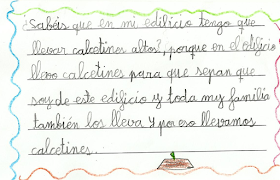 ¿Sabéis que en mi edificio tengo que
llevar calcetines altos?, porque en el edificio
llevo calcetines para que sepan que
soy de este edificio y toda my familia
también los lleva y por eso llevamos
calcetines...